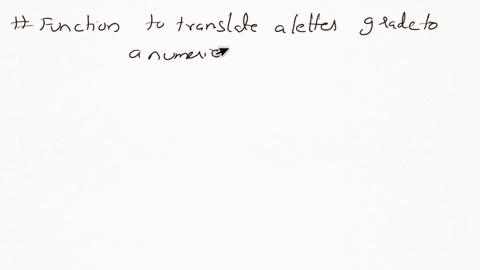 # Function to translate a letter grade to
a numeric